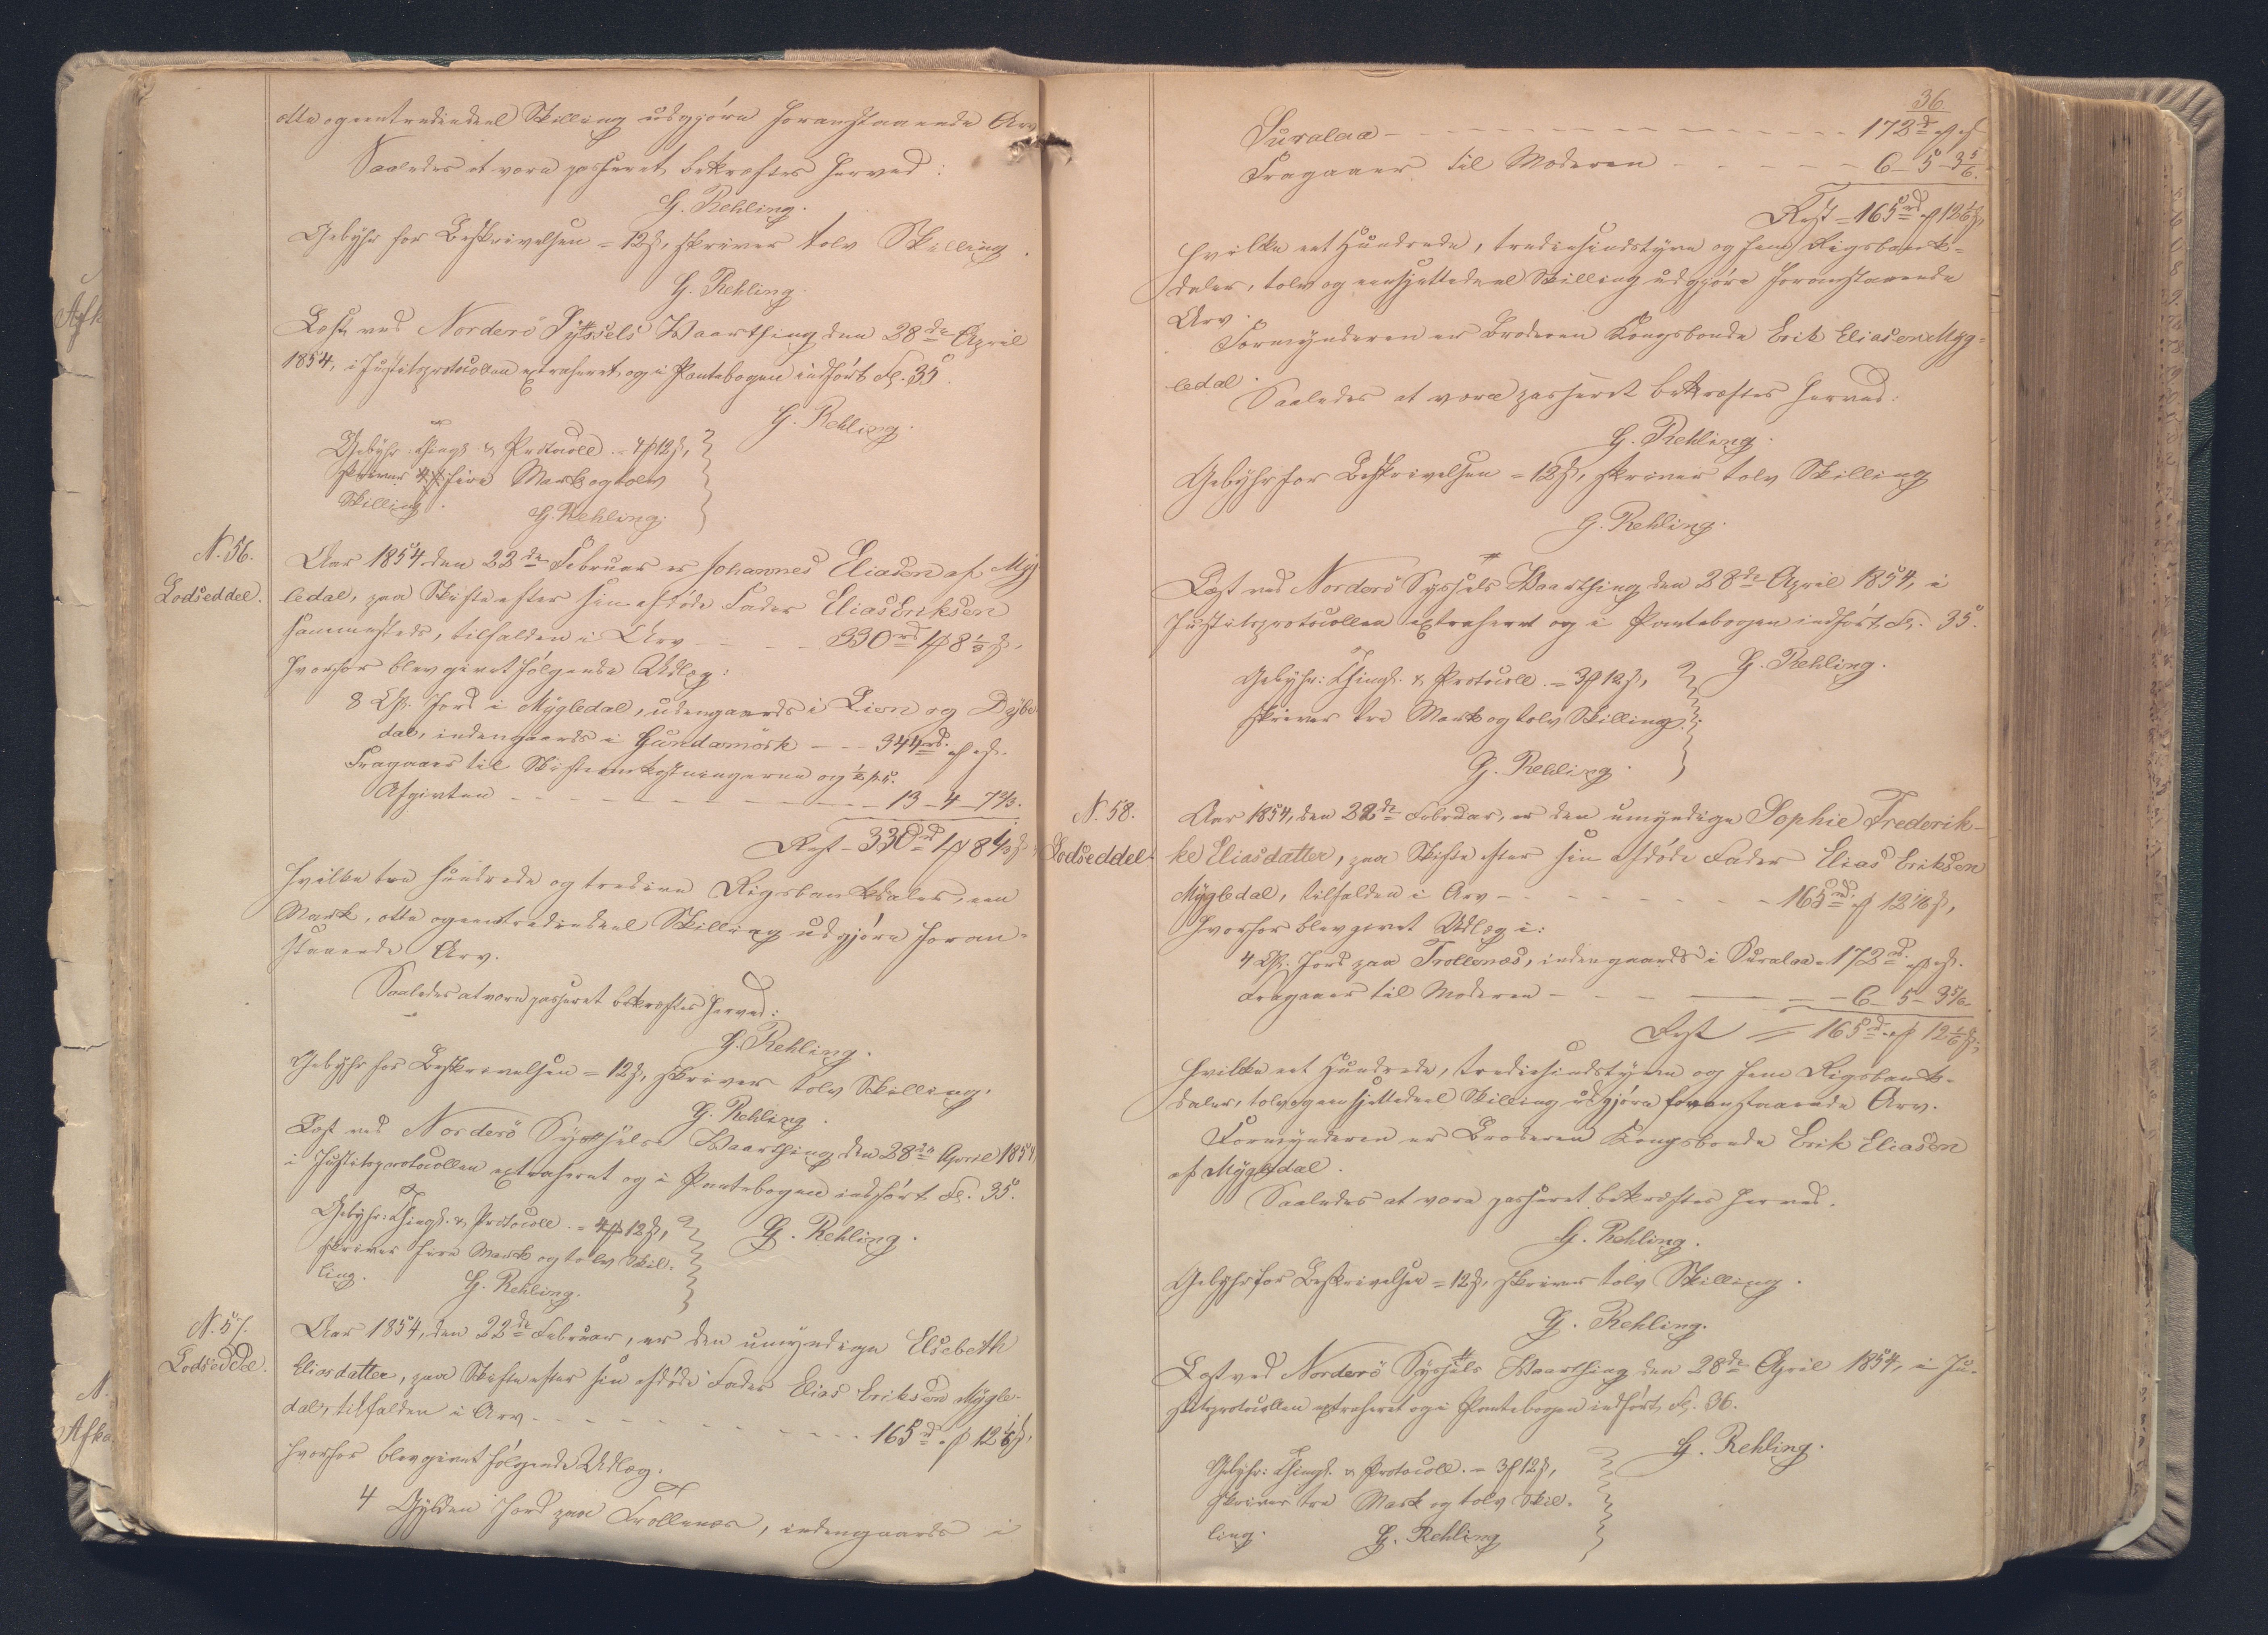 otte ogeentrediedeel Skilling udgjøre foranstaaende Arv
Saaledes at være passeret bekræftes herved:
G. Rehling.
Gebyhr for Beskrivelsen = 12 β, skriver tolv Skilling.
G. Rehling.
Læst ved Norderö Syssels Vaarthing den 28de April
1854, i Justitsprotocollen extraheret og i Pantebogen indført Fol. 35.
G. Rehling.
Gebyhr: Thingl. & Protocoll. = 4 ₰ 12 β,
skriver fire Mark og tolv
Skilling.
G. Rehling.
N. 56.
Lodseddel.
Aar 1854 den 22de Februar er Johannes Eliasen af Myg
ledal, paa Skifte efter sin afdøde Fader Elias Eriksen
sammesteds, tilfalden i Arv - - - 330 rd 1 ₰ 8 1/3 β,
hvorfor blev givet følgende Udlæg:
8 Lß. Jord i Mygledal, udengaards i Lion og Dybe
dal, indengaards i Gundamörk - - - 344 rd. „ ₰ „ β.
Fragaaer til Skifteomkostningerne og ½ p.C.
Afgivten - - - 13 - 4 - 7 2/3.
Rest = 330 rd 1 ₰ 8 1/3 β,
hvilke tre hundrede og tredive Rigsbankdaler, een
Mark, otte ogeentrediedeel Skilling udgjøre foran-
staaende Arv.
Saaledes at være passeret bekræftes herved:
G. Rehling.
Gebyhr for Beskrivelsen = 12 β, skriver tolv Skilling.
G. Rehling.
Læst ved Norderö Syssels Vaarthing den 28de April 1854,
i Justitsprotocollen extraheret og i Pantebogen indført Fol. 35.
Gebyhr: Thingl. & Protocoll. = 4 ₰ 12 β,
skriver fire Mark og tolv Skil-
ling.
G. Rehling.
G. Rehling.
N. 57.
Lodseddel.
Aar 1854, den 22de Februar, er den umyndige Elsebeth
Eliasdatter, paa Skifte efter sin afdøde Fader Elias Eriksen Mygle-
dal, tilfalden i Arv - - - 165 rd „ ₰ 12 1/6 β,
hvorfor blev givet følgende Udlæg:
4 Gylden Jord paa Trollenæs, indengaards i
36.
Suralaa - - - 172 rd „ ₰ „ β
Fragaaer til Moderen - - - 6 - 5 - 3 5/6.
Rest = 165 rd „ ₰ 12 1/6 β,
hvilke eet Hundrede, trediesindstyve og fem Rigsbank-
daler, tolv og eensjettedeel Skilling udgjøre foranstaaende
Arv.
Formynderen er Broderen Kongsbonde Erik Eliasen Myg-
ledal.
Saaledes at være passeret bekræftes herved:
G. Rehling.
Gebyhr for Beskrivelsen = 12 β, skriver tolv Skilling
G. Rehling.
Læst ved Norderö Syssels Vaarthing den 28de April 1854, i
Justitsprotocollen extraheret og i Pantebogen indført Fol. 35.
G. Rehling.
Gebyhr: Thingl. & Protocoll. = 3 ₰ 12 β,
skriver tre Mark og tolv Skilling.
G. Rehling.
N. 58.
Lodseddel.
Aar 1854, den 22de Februar, er den umyndige Sophie Frederik-
ke Eliasdatter, paa Skifte efter sin afdøde Fader Elias Eriksen
Mygledal, tilfalden i Arv - - - 165 rd. „ ₰ 12 1/6 β,
hvorfor blev givet Udlæg i:
4 Lß. Jord paa Trollenæs, indengaards i Suralaa = 172 rd. „ ₰ „ β.
Fragaaer til Moderen - - - 6 - 5 - 3 5/6.
Rest = 165 rd. „ ₰ 12 1/6 β,
hvilke eet Hundrede, trediesindstyve og fem Rigsbank-
daler, tolv ogeensjettedeel Skilling udgjøre foranstaaende Arv.
Formynderen er Broderen Kongsbonde Erik Eliasen
af Mygledal.
Saaledes at være passeret bekræftes herved.
G. Rehling.
Gebyhr for Beskrivelsen = 12 β, skriver tolv Skilling.
G. Rehling.
Læst ved Norderö Syssels Vaarthing den 28de April 1854, i Ju-
stitsprotocollen extraheret og i Pantebogen indført Fol. 36.
G. Rehling.
Gebyhr: Thingl. & Protocoll. = 3 ₰ 12 β,
skriver tre Mark og tolv Skil-
ling.
G. Rehling